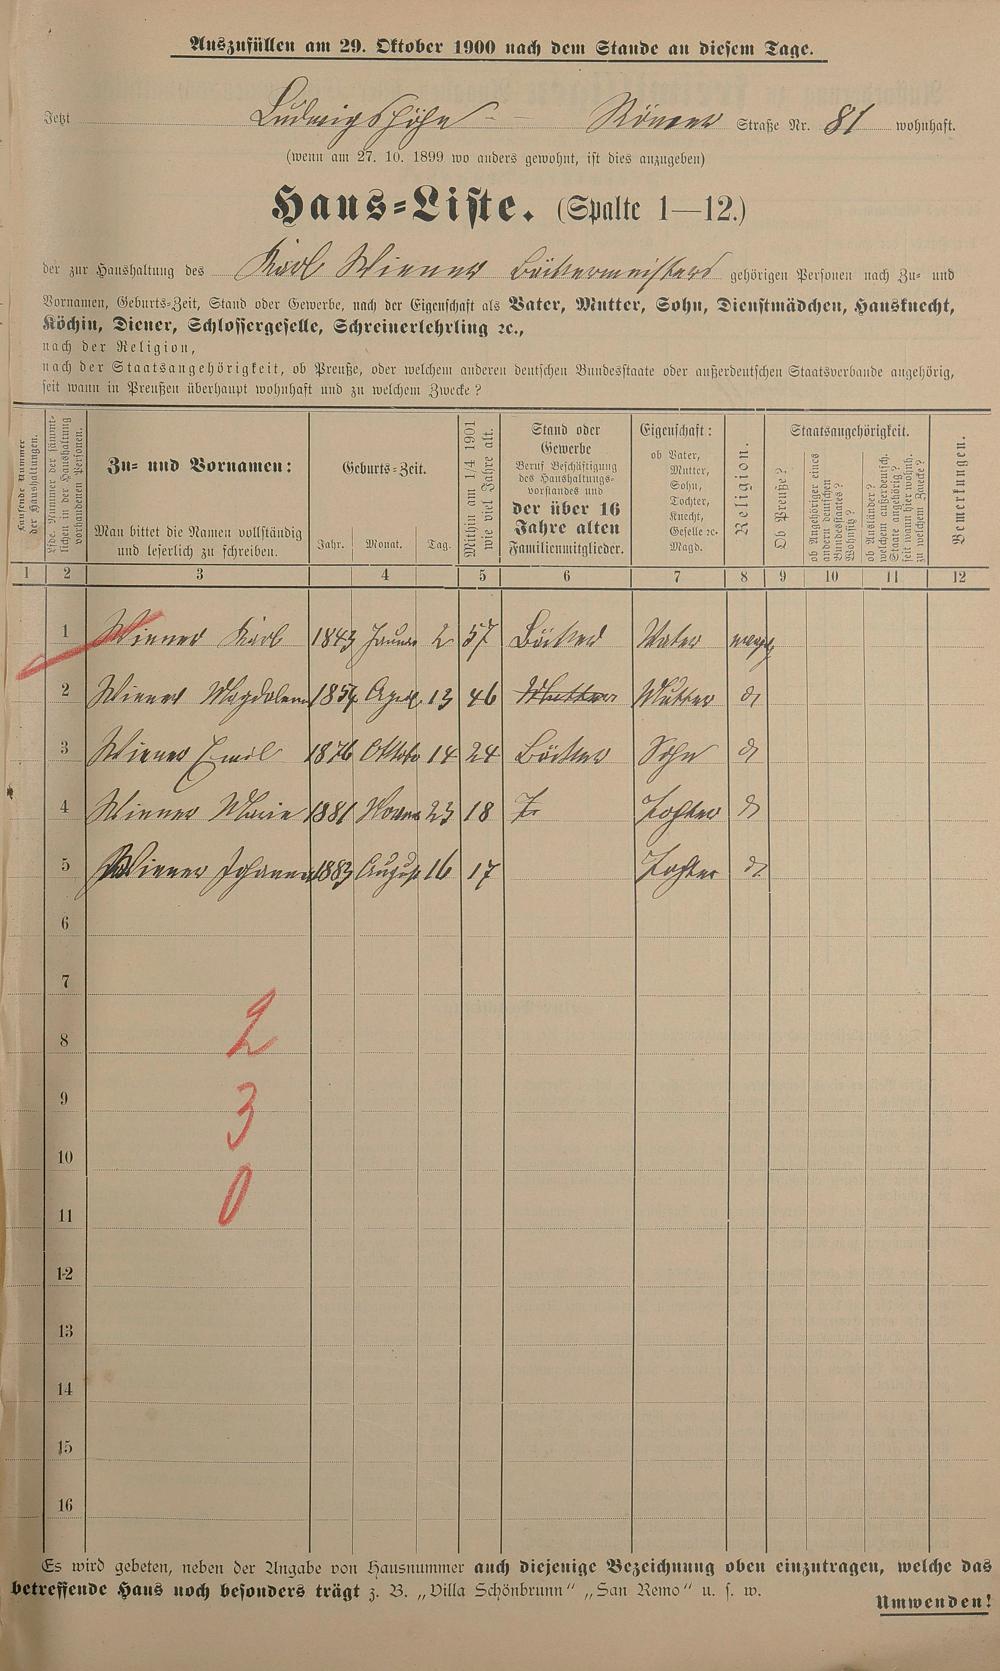 Auszufüllen am 29. Oktober 1900 nach dem Stande an diesem Tage.
Jetzt Ludwigshöhe - Römer Straße Nr. 81 wohnhaft.
(wenn am 27. 10. 1899 wo anders gewohnt, ist dies anzugeben)
Haus-Liste. (Spalte 1—12.)
der zur Haushaltung des Karl Wiener Bäckermeisters gehörigen Personen nach Zu- und
Vornamen, Geburts-Zeit, Stand oder Gewerbe, nach der Eigenschaft als Vater, Mutter, Sohn, Dienstmädchen, Hausknecht,
Köchin, Diener, Schlossergeselle, Schreinerlehrling ꝛc.,
nach der Religion,
nach der Staatsangehörigkeit, ob Preuße, oder welchem anderen deutschen Bundesstaate oder außerdeutschen Staatsverbande angehörig,
seit wann in Preußen überhaupt wohnhaft und zu welchem Zwecke?
Laufende Nummer
der Haushaltungen.
Lfde. Nummer der sämmt-
lichen in der Haushaltung
vorhandenen Personen.
Zu- und Vornamen:
Man bittet die Namen vollständig
und leserlich zu schreiben.
Geburts-Zeit.
Jahr. Monat. Tag.
Mithin am 1/4 1901
wie viel Jahre alt.
Stand oder
Gewerbe
Beruf Beschäftigung
des Haushaltungs-
vorstandes und
der über 16
Jahre alten
Familienmitglieder.
Eigenschaft:
ob Vater,
Mutter,
Sohn,
Tochter,
Knecht,
Geselle ꝛc.
Magd.
Religion.
Staatsangehörigkeit.
Ob Preuße?
ob Angehöriger eines
andern deutschen
Bundesstaates?
Wohnsitz?
ob Ausländer?
welchem außerdeutsch.
Staate angehörig?
seit wann hier wohnh.
zu welchem Zwecke?
Bemerkungen.
1 2 3 4 5 6 7 8 9 10 11 12
1 Wiener Karl 1843 Januar 2 57 Bäcker Vater evang
2 Wiener Magdalena 1854 April 13 46 Mutter Mutter do
3 Wiener Emil 1876 Oktob 14 24 Bäcker Sohn do
4 Wiener Marie 1881 Novem 23 18 Tochter do
5 Wiener Johanna 1883 August 16 17 Tochter do
6
7
8 2
9 3
10
11 0
12
13
14
15
16
Es wird gebeten, neben der Angabe von Hausnummer auch diejenige Bezeichnung oben einzutragen, welche das
betreffende Haus noch besonders trägt z. B. „Villa Schönbrunn“ „San Remo“ u. s. w.
Umwenden!